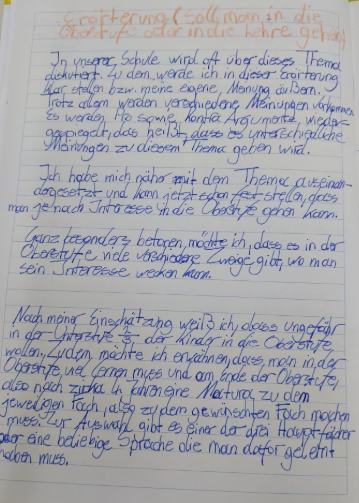 Erörterung (soll man in die
Oberstufe oder in die Lehre gehen)
In unserer Schule wird oft über dieses Thema
diskutiert. Zu dem werde ich in dieser erörterung
klar stellen bzw. meine eigene, Meinung äußern.
Trotz allem werden verschiedene Meinungen vorkommen
Es werden Pro sowie Kontra Argumente, wieder-
gespiegelt, das heißt, dass es unterschiedliche
Meinungen zu diesem Thema geben wird.
Ich habe mich näher mit dem Thema auseinan-
dergesetzt und kann jetzt schon fest stellen, dass
man je nach Interesse in die Oberstufe gehen kann.
Ganz besonders betonen, möchte ich, dass es in der
Oberstufe viele verschiedene Zweige gibt, wo man
sein Interesse wecken kann.
Nach meiner Einschätzung weiß ich, dass ungefähr
in der Unterstufe der Kinder in die Oberstufe,
wollen. Zudem möchte ich erwähnen, dass, man in der
Oberstufe viel lernen muss und am Ende der Oberstufe,
also nach zirka 4 Jahren eine Matura zu dem
jeweiligen Fach, also zu dem gewünschten Fach machen
muss. Zur Auswahl gibt es einer der drei Hauptfächer
oder eine beliebige Sprache die man dafür gelernt
haben muss.